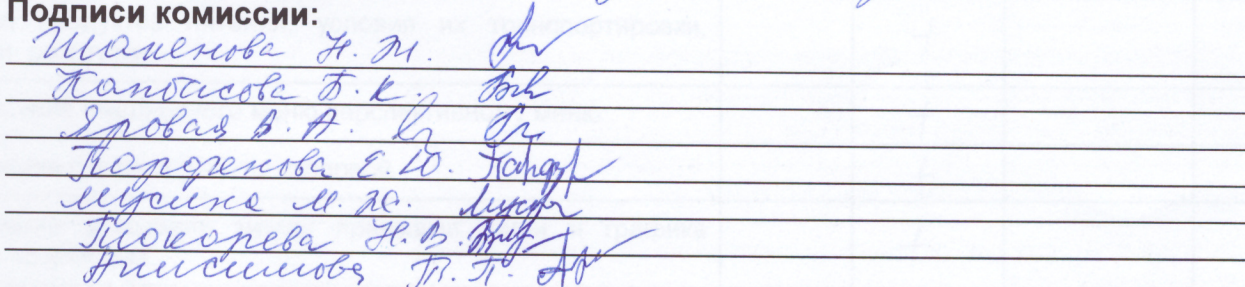 Подписи комиссии:
Шакенова Н. М.
Капбасова Б. К.
Яровая В. А.
Парфенова Е. Ю.
Мусина М.
Токарева Н. В.
Анисимова Т. П.